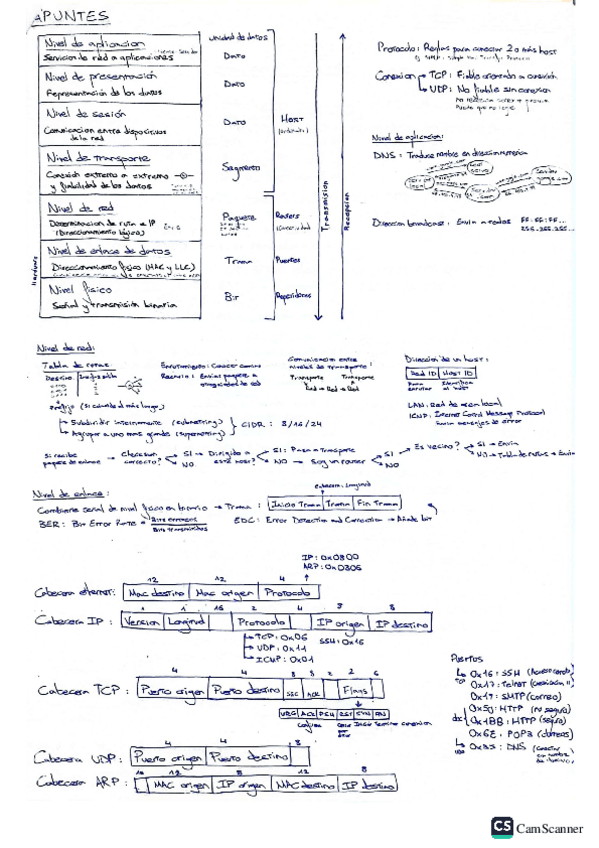 APUNTES
Nivel de aplicacion
Servicios de red a aplicaciones
Nivel de presentación
Representación de los datos
Nivel de sesión
Comunicación entre dispositivos
de la red
Nivel de transporte
Conexión extremo a extremo
y fiabilidad de los datos
Nivel de red
Determinación de ruta e IP
(Direccionamiento lógico)
Nivel de enlace de datos
Direccionamiento físico (MAC y LLC)
Nivel físico
Señal y transmisión binaria
Hardware
Unidad de datos
Dato
Dato
Dato
Segmento
Paquete
Trama
Bit
HOST
Routers
Puentes
Repetidores
Transmisión
Recepcion
Protocolo: Reglas para conectar 2 o más host
Conexion → TCP: Fiable orientado a conexión
→ UDP: No fiable sin conexión
Nivel de aplicacion:
DNS: Traduce nombre en dirección numérica
Direccion broadcast: Envia a todos FF:FF:FF...
255.255.255...
Nivel de red:
Tabla de rutas
Destino
Enrutamiento: Conocer camino
Comunicación entre
niveles de transporte:
Transporte Transporte
Red → Red → Red
Direccion de un host:
Red ID HOST ID
Para enrutar
LAN: Red de area local
ICMP: Internet Control Message Protocol
Envia mensajes de error
Prefijo (Si coincide el más largo)
→ Subdividir internamente (subnetting)
→ Agrupar a uno mas grande (supernetting)
CIDR: 8/16/24
Si recibe
paquete de enlace → Checksum
correcto? → SI → Dirigido a
este host? → SI: Pasa a transporte
NO
NO → Soy un router → SI → Es vecino? → SI → Envia
NO → Tabla de rutas → Envia
NO
Nivel de enlace:
Combierte señal de nivel fisico en binario → Trama: Inicio Trama Trama Fin Trama
BER: Bit Error Rate = Bits erroneos
Bits transmitidos
EDC: Error Detection and Correction → Añade bit
IP: 0x0800
ARP: 0x0806
12 12 4
Cabecera ethernet: Mac destino Mac origen Protocolo
1 1 16 2 4 8 8
Cabecera IP: Version Longitud Protocolo IP origen IP destino
→ TCP: 0x06
→ UDP: 0x11
→ ICMP: 0x01
SSH: 0x16
4 4 8 8 2 2 6
Cabecera TCP: Puerto origen Puerto destino SEC ACK Flags
URG ACK PSH RST SYN FIN
4 4 8
Cabecera UDP: Puerto origen Puerto destino
16 12 8 12 8
Cabecera ARP: MAC origen IP origen MAC destino IP destino
Puertos
TCP
0x16: SSH
0x17: Telnet
0x19: SMTP (correo)
0x50: HTTP (no segura)
0x1BB: HTTP (segura)
0x6E: POP3 (correos)
UDP
0x35: DNS
CS CamScanner